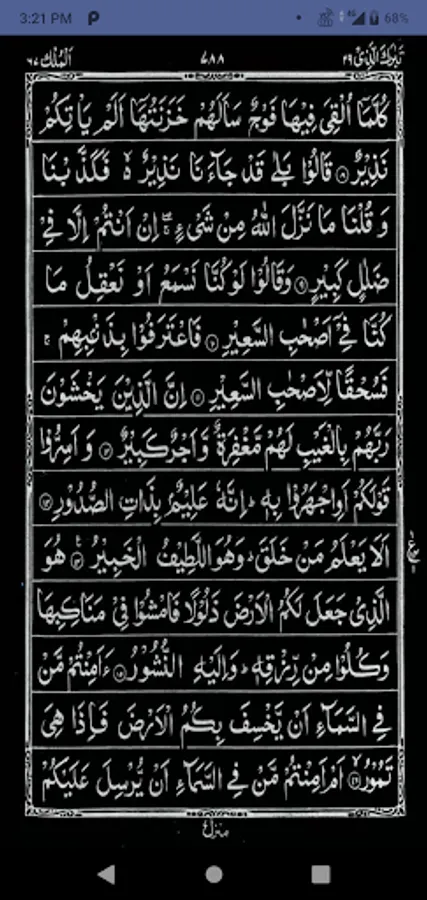 3:21 PM P 4G 68%
تبٰرك الذی ٢٩ ٧٨٨ الملك ٦٧
كُلَّمَاۤ اُلْقِیَ فِیْهَا فَوْجٌ سَاَلَهُمْ خَزَنَتُهَاۤ اَلَمْ یَاْتِكُمْ
نَذِیْرٌ ۝٨ قَالُوْا بَلٰی قَدْ جَآءَنَا نَذِیْرٌ ۬ۙ فَكَذَّبْنَا
وَ قُلْنَا مَا نَزَّلَ اللّٰهُ مِنْ شَیْءٍ ۖۚ اِنْ اَنْتُمْ اِلَّا فِیْ
ضَلٰلٍ كَبِیْرٍ ۝٩ وَقَالُوْا لَوْ كُنَّا نَسْمَعُ اَوْ نَعْقِلُ مَا
كُنَّا فِیْۤ اَصْحٰبِ السَّعِیْرِ ۝١٠ فَاعْتَرَفُوْا بِذَنْۢبِهِمْ ۚ
فَسُحْقًا لِّاَصْحٰبِ السَّعِیْرِ ۝١١ اِنَّ الَّذِیْنَ یَخْشَوْنَ
رَبَّهُمْ بِالْغَیْبِ لَهُمْ مَّغْفِرَةٌ وَّاَجْرٌ كَبِیْرٌ ۝١٢ وَ اَسِرُّوْا
قَوْلَكُمْ اَوِاجْهَرُوْا بِهٖ ؕ اِنَّهٗ عَلِیْمٌۢ بِذَاتِ الصُّدُوْرِ ۝١٣
اَلَا یَعْلَمُ مَنْ خَلَقَ ؕ وَهُوَ اللَّطِیْفُ الْخَبِیْرُ ۝١٤ هُوَ
الَّذِیْ جَعَلَ لَكُمُ الْاَرْضَ ذَلُوْلًا فَامْشُوْا فِیْ مَنَاكِبِهَا
وَكُلُوْا مِنْ رِّزْقِهٖ ؕ وَاِلَیْهِ النُّشُوْرُ ۝١٥ ءَاَمِنْتُمْ مَّنْ
فِی السَّمَآءِ اَنْ یَّخْسِفَ بِكُمُ الْاَرْضَ فَاِذَا هِیَ
تَمُوْرُ ۝١٦ اَمْ اَمِنْتُمْ مَّنْ فِی السَّمَآءِ اَنْ یُّرْسِلَ عَلَیْكُمْ
منزل